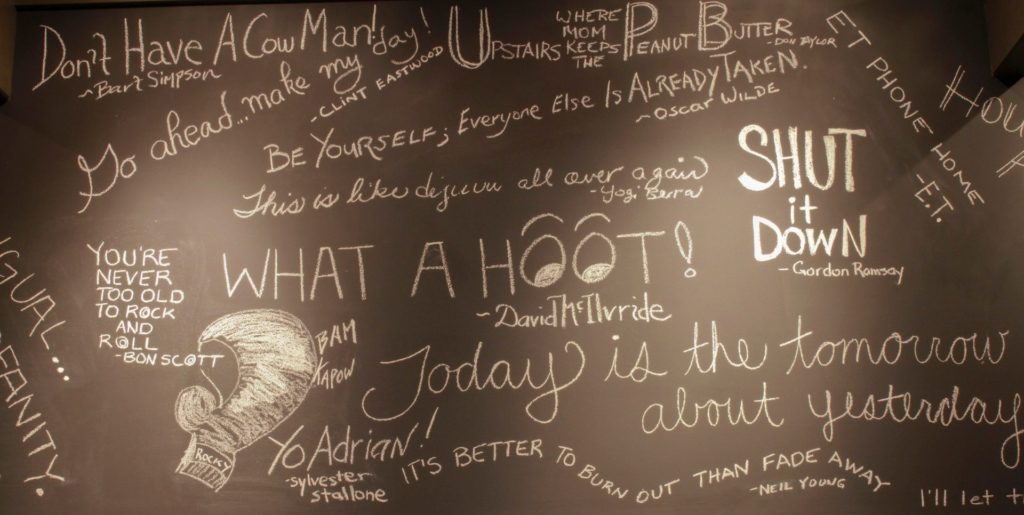 Don't Have A Cow Man!
~Bart Simpson
Go ahead...make my day!
-CLINT EASTWOOD
UPSTAIRS WHERE MOM KEEPS THE PEANUT BUTTER
-DON TAYLOR
BE YOURSELF; EVERYONE ELSE IS ALREADY TAKEN.
~OSCAR WILDE
ET PHONE HOME
-E.T.
This is like dejuvu all over again
-Yogi Berra
SHUT
it
DOWN
-Gordon Ramsay
WHAT A HOOT!
~David McIlvride
YOU'RE
NEVER
TOO OLD
TO ROCK
AND
ROLL
-BON SCOTT
BAM
KAPOW
ROCKY
Yo Adrian!
-sylvester
stallone
Today is the tomorrow
about yesterday
IT'S BETTER TO BURN OUT THAN FADE AWAY
-NEIL YOUNG
I'll let